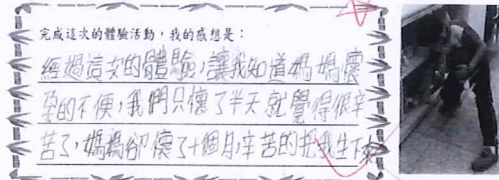 完成這次的體驗活動，我的感想是：
經過這次的體驗，讓我知道媽媽懷
孕的不便，我們只懷了半天就覺得很辛
苦了，媽媽卻懷了十個月，辛苦的把我生下來